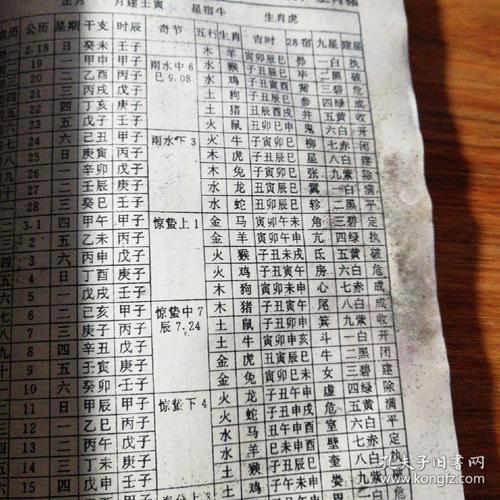 正月 月建壬寅 星宿牛 生肖虎
农历 公历 星期 干支 时辰 奇节 五行 生肖 吉时 28宿 九星 建星
2.18 日 癸未 壬子 木 羊 寅卯辰巳 昴 一白 执
19 一 甲申 甲子 雨水中6 水 猴 子丑辰巳 毕 二黑 破
20 二 乙酉 丙子 巳9.08 水 鸡 觜 三碧 危
21 三 丙戌 戊子 土 狗 参 四绿 成
22 四 丁亥 庚子 土 猪 井 五黄 收
23 五 戊子 壬子 火 鼠 丑卯巳申 鬼 六白 开
24 六 己丑 甲子 雨水下3 火 牛 寅卯巳 柳 七赤 闭
25 日 庚寅 丙子 木 虎 子丑辰巳 星 八白 建
26 一 辛卯 戊子 木 兔 子寅卯巳 张 九紫 除
27 二 壬辰 庚子 水 龙 丑寅辰巳 翼 一白 满
28 三 癸巳 壬子 水 蛇 丑卯辰巳 轸 二黑 平
3.1 四 甲午 甲子 惊蛰上1 金 马 寅卯午未 角 三碧 定
2 五 乙未 丙子 金 羊 寅卯午申 亢 四绿 执
3 六 丙申 戊子 火 猴 子丑未戌 氐 五黄 破
4 日 丁酉 庚子 火 鸡 子寅午未 房 六白 危
5 一 戊戌 壬子 木 狗 寅卯辰巳 心 七赤 成
6 二 己亥 甲子 惊蛰中7 木 猪 子丑寅午 尾 八白 成
7 三 庚子 丙子 辰7.24 土 鼠 子丑卯申 箕 九紫 收
8 四 辛丑 戊子 土 牛 寅卯申亥 斗 一白 开
9 五 壬寅 庚子 金 虎 子丑辰巳 牛 二黑 闭
10 六 癸卯 壬子 金 兔 寅卯巳未 女 三碧 建
11 日 甲辰 甲子 惊蛰下4 火 龙 虚 四绿 除
12 一 乙巳 丙子 火 蛇 子丑申戌 危 五黄 满
13 二 丙午 戊子 水 马 室 六白 平
14 三 丁未 庚子 水 羊 壁 七赤 定
15 四 戊申 壬子 土 猴 子丑辰巳 奎 八白 执
土 鸡 娄 九紫